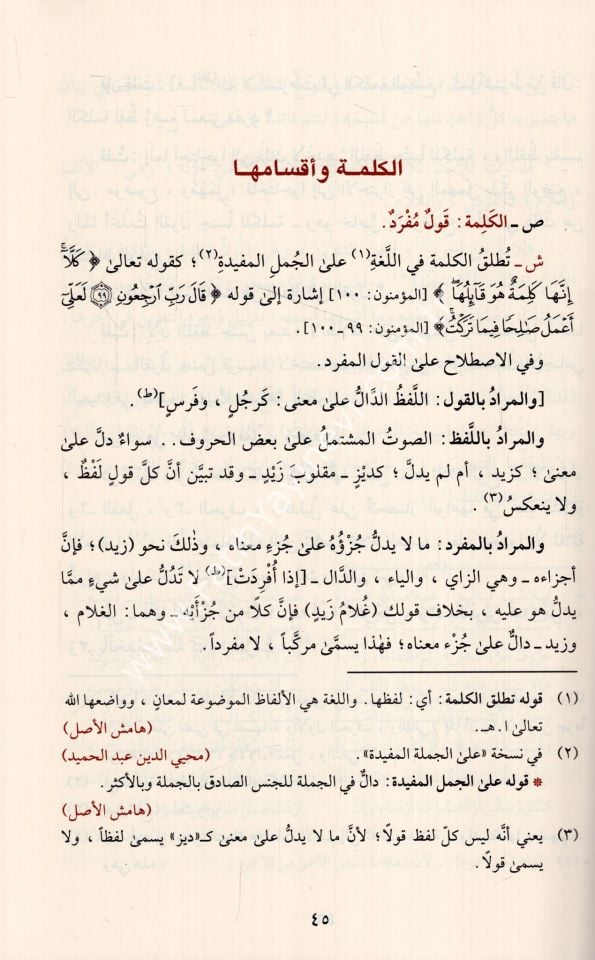 الكلمة وأقسامها
ص ـ الكَلِمة: قَولٌ مُفْرَدٌ.
ش ـ تُطلقُ الكلمة في اللّغةِ(١) علىٰ الجُملِ المفيدةِ(٢)؛ كقوله تعالىٰ ﴿ كَلَّآۚ
إِنَّهَا كَلِمَةٌ هُوَ قَآئِلُهَاۖ ﴾ [المؤمنون: ١٠٠] إشارة إلىٰ قوله ﴿ قَالَ رَبِّ ٱرْجِعُونِ ﴿٩٩﴾ لَعَلِّيٓ
أَعْمَلُ صَٰلِحًا فِيمَا تَرَكْتُۚ ﴾ [المؤمنون: ٩٩ ـ ١٠٠].
وفي الاصطلاح علىٰ القول المفرد.
[والمرادُ بالقول: اللَّفظُ الدَّالُّ علىٰ معنى: كَرجُلٍ، وفَرَسٍ](ط).
والمرادُ باللَّفظ: الصوتُ المشتملُ علىٰ بعض الحروف.. سواءٌ دلَّ علىٰ
معنىٰ؛ كزيد، أم لم يدلَّ؛ كديْزٍ ـ مقلوبَ زَيْدٍ ـ وقد تبيَّن أنَّ كلَّ قولٍ لَفْظٌ،
ولا ينعكسُ(٣).
والمرادُ بالمفرد: ما لا يدلُّ جُزْؤُهُ علىٰ جُزءِ معناه، وذٰلكَ نحو (زيد)؛ فإنَّ
أجزاءه ـ وهي الزاي، والياء، والدَّال ـ [إذا أُفْرِدَتْ](ط) لا تَدُلُّ علىٰ شيءٍ ممَّا
يدلُّ هو عليه، بخلاف قولك (غُلامُ زَيدٍ) فإنَّ كلًّا من جُزْأَيْه ـ وهما: الغلام،
وزيد ـ دالٌّ علىٰ جُزْء معناه؛ فهٰذا يسمَّىٰ مركَّباً، لا مفرداً.
(١) قوله تطلق الكلمة: أي: لفظها. واللغة هي الألفاظ الموضوعة لمعانٍ، وواضعها الله
تعالىٰ ا.هـ. (هامش الأصل)
(٢) في نسخة «علىٰ الجملة المفيدة». (محيي الدين عبد الحميد)
* قوله علىٰ الجمل المفيدة: دالٌّ في الجملة للجنس الصادق بالجملة وبالأكثر.
(هامش الأصل)
(٣) يعني أنَّه ليس كلّ لفظ قولًا؛ لأنَّ ما لا يدلُّ علىٰ معنىٰ كـ«ديز» يسمىٰ لفظاً، ولا
يسمىٰ قولًا.
٤٥